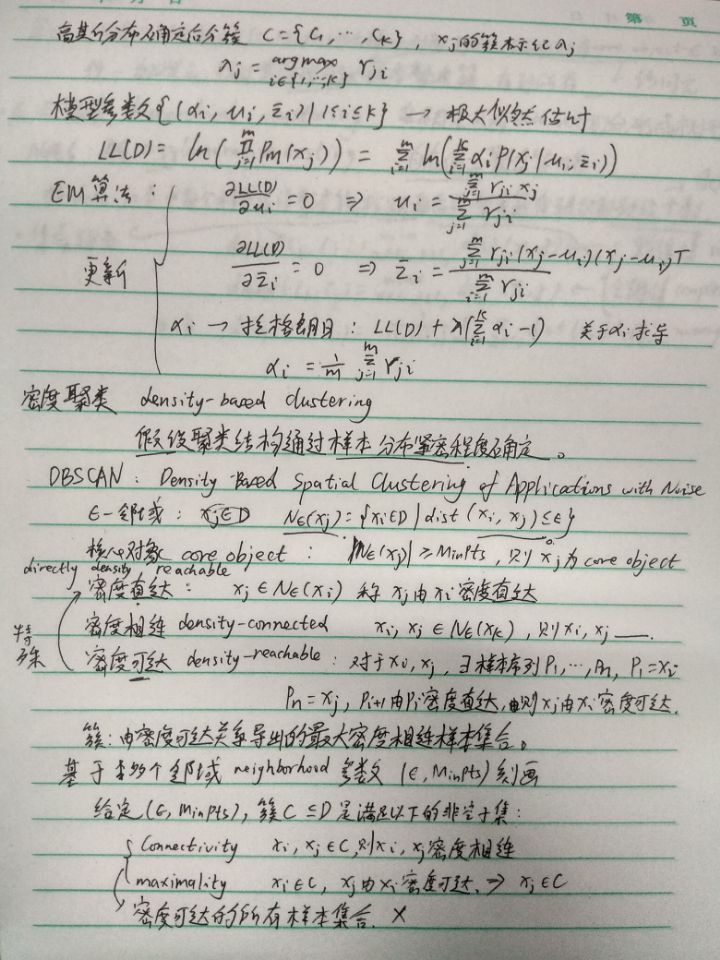 第 页
高斯分布确定后分簇 C={C₁,…,Cₖ}, xⱼ的簇标记λⱼ
λⱼ = argmax_{i∈{1,…,k}} γⱼᵢ
模型参数{(αᵢ, uᵢ, Σᵢ)|1≤i≤k} → 极大似然估计
LL(D) = ln(∏_{j=1}^{m} Pm(xⱼ)) = Σ_{j=1}^{m} ln(Σ_{i=1}^{k} αᵢ P(xⱼ|uᵢ, Σᵢ))
EM算法: ∂LL(D)/∂uᵢ = 0 ⇒ uᵢ = Σ_{j=1}^{m} γⱼᵢ xⱼ / Σ_{j=1}^{m} γⱼᵢ
更新 ∂LL(D)/∂Σᵢ = 0 ⇒ Σᵢ = Σ_{j=1}^{m} γⱼᵢ (xⱼ-uᵢ)(xⱼ-uᵢ)ᵀ / Σ_{i=1}^{m} γⱼᵢ
αᵢ → 拉格朗日: LL(D) + λ(Σ_{i=1}^{k} αᵢ -1) 关于αᵢ求导
αᵢ = 1/m Σ_{j=1}^{m} γⱼᵢ
密度聚类 density-based clustering
假设聚类结构通过样本分布紧密程度确定。
DBSCAN: Density-Based Spatial Clustering of Applications with Noise
ϵ-邻域: xⱼ∈D Nϵ(xⱼ)={xᵢ∈D | dist(xᵢ, xⱼ)≤ϵ}
核心对象 core object: |Nϵ(xⱼ)|≥MinPts, 则xⱼ为core object
directly density reachable
密度直达: xⱼ∈Nϵ(xᵢ) 称 xⱼ由xᵢ密度直达
密度相连 density-connected xᵢ, xⱼ∈Nϵ(xₖ), 则xᵢ, xⱼ ——.
特殊
密度可达 density-reachable: 对于xᵢ, xⱼ, ∃样本序列P₁,…,Pn, P₁=xᵢ
Pn=xⱼ, Pᵢ₊₁由Pᵢ密度直达, 则xⱼ由xᵢ密度可达.
簇: 由密度可达关系导出的最大密度相连样本集合。
基于 邻域 neighborhood 参数 (ϵ, MinPts) 刻画
给定(ϵ, MinPts), 簇C⊆D是满足以下的非空子集:
Connectivity xᵢ, xⱼ∈C, 则xᵢ, xⱼ密度相连
maximality xᵢ∈C, xⱼ由xᵢ密度可达, ⇒ xⱼ∈C
密度可达的所有样本集合. X